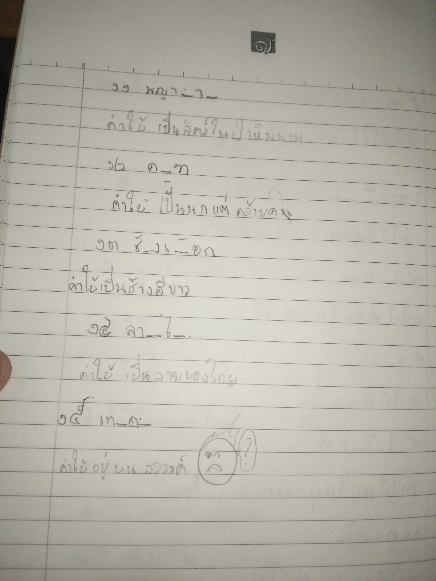 ๑๑ พญา_า_
คำใบ้ เป็นสัตว์ในป่าหิมพาน
๑๒ ค_ฑ
คำใบ้ เป็นนกแต่คล้ายคน
๑๓ ช้_งเ_อก
คำใบ้เป็นช้างสีขาว
๑๔ ลา_ไ_
คำใบ้ เป็นลายของไทย
๑๕ เท_ด_
คำใบ้ อยู่ บน สวรรค์ ?